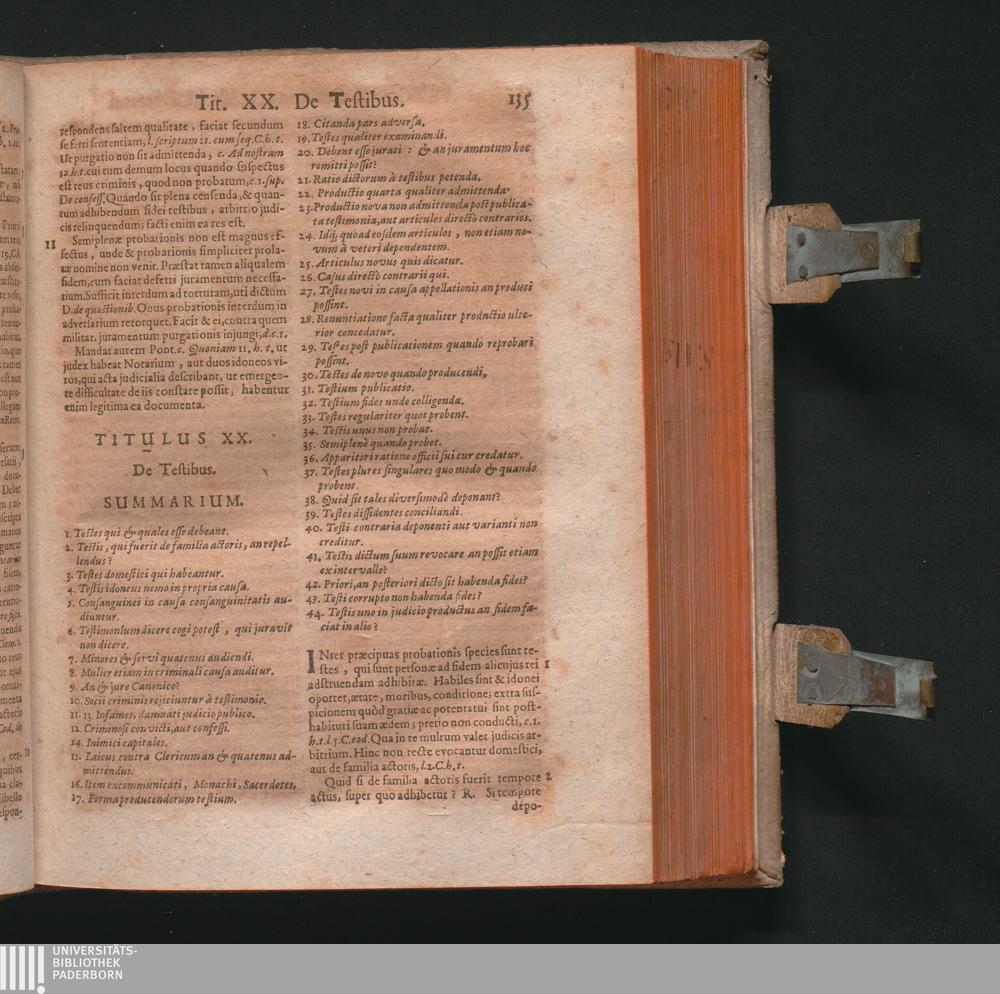 Tit. XX. De Testibus. 135
respondens saltem qualitate, faciat secundum
se ferri sententiam, l. scriptum 11. cum seq. C. h. t.
Ut purgatio non sit admittenda, c. Ad nostram
h. t. cui tum demum locus quando suspectus
est reus criminis, quod non probatum, c. 1. sup.
De confess. Quando sit plena censenda, & quan-
tum adhibendum fidei testibus, arbitrio judi-
cis relinquendum; facti enim ea res est.
11 Semiplenæ probationis non est magnus ef-
fectus, unde & probationis simpliciter prola-
tæ nomine non venit. Præstat tamen aliqualem
fidem, cum faciat deferri juramentum necessa-
rium. Sufficit interdum ad torturam, uti dictum
D. de quæstionib. Onus probationis interdum in
adversarium retorquet. Facit & ei, contra quem
militat, juramentum purgationis injungi, d. c. 1.
Mandat autem Pont. c. Quoniam 11. h. t. ut
judex habeat Notarium, aut duos idoneos vi-
ros, qui acta judicialia describant, ut emergen-
te difficultate de iis constare possit; habentur
enim legitima ea documenta.
TITULUS XX.
De Testibus.
SUMMARIUM.
1. Testes qui & quales esse debeant.
2. Testis, qui fuerit de familia actoris, an repel-
lendus?
3. Testes domestici qui habeantur.
4. Testis idoneus nemo in propria causa.
5. Consanguinei in causa consanguinitatis au-
diuntur.
6. Testimonium dicere cogi potest, qui juravit
non dicere.
7. Minores & servi quatenus audiendi.
8. Mulier etiam in criminali causa auditur.
9. An & jure Canonico?
10. Socii criminis rejiciuntur à testimonio.
11. 13. Infames, damnati judicio publico.
12. Criminosi convicti, aut confessi.
14. Inimici capitales.
15. Laicus contra Clericum an & quatenus ad-
mittendus.
16. Item excommunicati, Monachi, Sacerdotes,
17. Forma producendorum testium.
18. Citanda pars adversa.
19. Testes qualiter examinandi.
20. Debent esse jurati: & an juramentum hoc
remitti possit?
21. Ratio dictorum à testibus petenda.
22. Productio quarta qualiter admittenda.
23. Productio nova non admittenda post publica-
ta testimonia, aut articulos directò contrarios.
24. Idq; quoad eosdem articulos, non etiam no-
vum à veteri dependentem.
25. Articulus novus quis dicatur.
26. Casus directò contrarii qui.
27. Testes novi in causa appellationis an produci
possint.
28. Renuntiatione facta qualiter productio ulte-
rior concedatur.
29. Testes post publicationem quando reprobari
possint.
30. Testes de novo quando producendi.
31. Testium publicatio.
32. Testium fides unde colligenda.
33. Testes regulariter quot probent.
34. Testis unus non probat.
35. Semiplenè quando probet.
36. Apparitori ratione officii sui cur credatur.
37. Testes plures singulares quo modo & quando
probent.
38. Quid sit tales diversimodè deponant?
39. Testes dissidentes conciliandi.
40. Testi contraria deponenti aut varianti non
creditur.
41. Testis dictum suum revocare an possit etiam
ex intervallo?
42. Priori, an posteriori dicto sit habenda fides?
43. Testi corrupto non habenda fides?
44. Testis uno in judicio productus an fidem fa-
ciat in alio?
INter præcipuas probationis species sunt te-
stes, qui sunt personæ ad fidem alicujus rei 1
adstruendam adhibitæ. Habiles sint & idonei
oportet, ætate, moribus, conditione; extra sus-
picionem quòd gratiæ ac potentatui sint post-
habituri suam ædem; pretio non conducti, c. 1.
h. t. l. 5. C. eod. Qua in te multum valet judicis ar-
bitrium. Hinc non recte evocantur domestici,
aut de familia actoris, l. 2. C. h. t.
Quid si de familia actoris fuerit tempore 2
actus, super quo adhibetur? R. Si tempore
depo-
UNIVERSITÄTS-
BIBLIOTHEK
PADERBORN